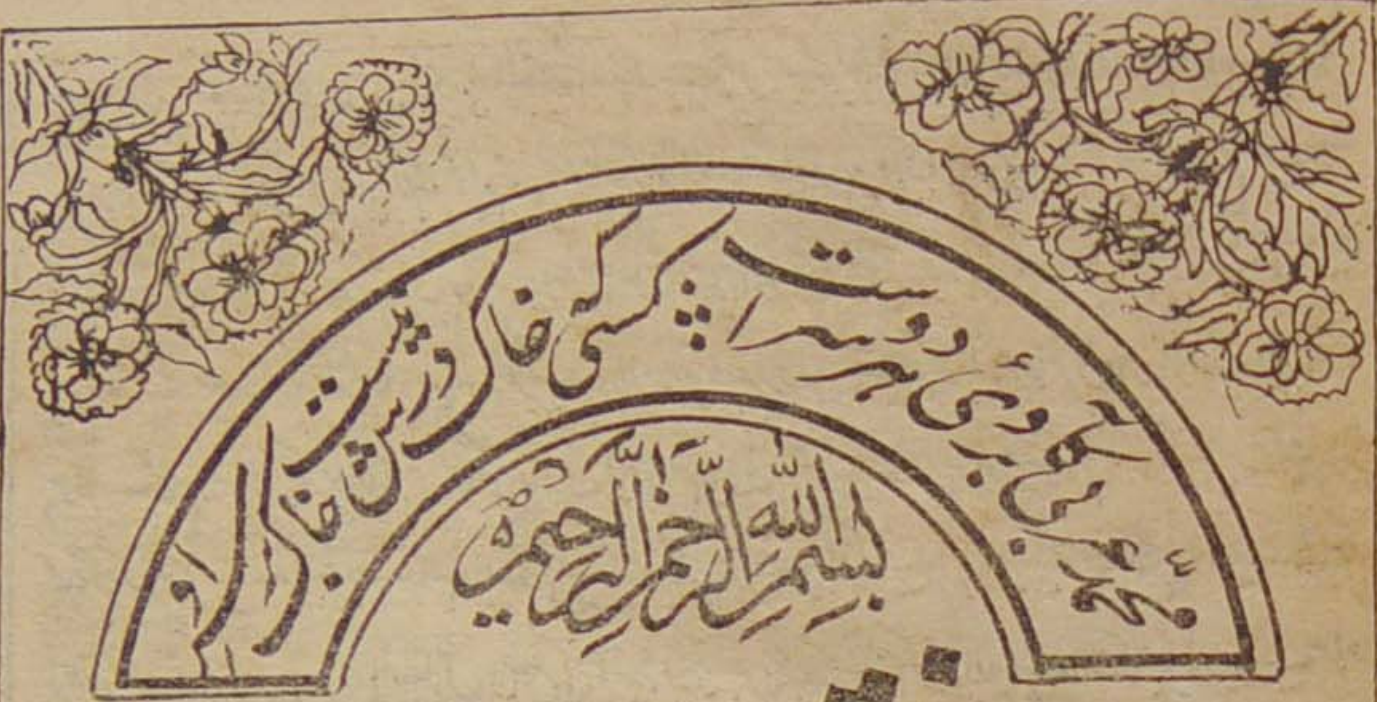 محمد عربی کآبروئے ہر دو سراست
کسی کہ خاک درش نیست خاک بر سر او
بِسْمِ اللّٰهِ الرَّحْمٰنِ الرَّحِيْمِ